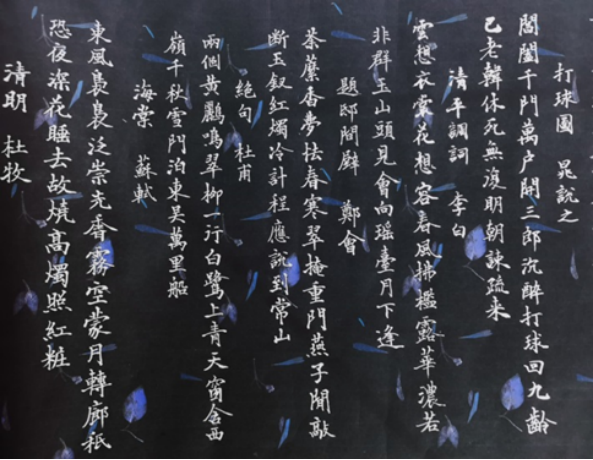 打球圖 晁說之
閶闔千門萬戶開三郎沉醉打球回九齡
已老韓休死無復明朝諫疏來
清平調詞 李白
雲想衣裳花想容春風拂檻露華濃若
非群玉山頭見會向瑶臺月下逢
題邸間壁 鄭會
荼蘼香夢怯春寒翠掩重門燕子閒敲
断玉釵紅燭冷計程應說到常山
絕句 杜甫
兩個黃鸝鳴翠柳一行白鷺上青天窗含西
嶺千秋雪門泊東吴萬里船
海棠 蘇軾
東風裊裊泛崇光香霧空蒙月轉廊祇
恐夜深花睡去故燒高燭照紅粧
清明 杜牧